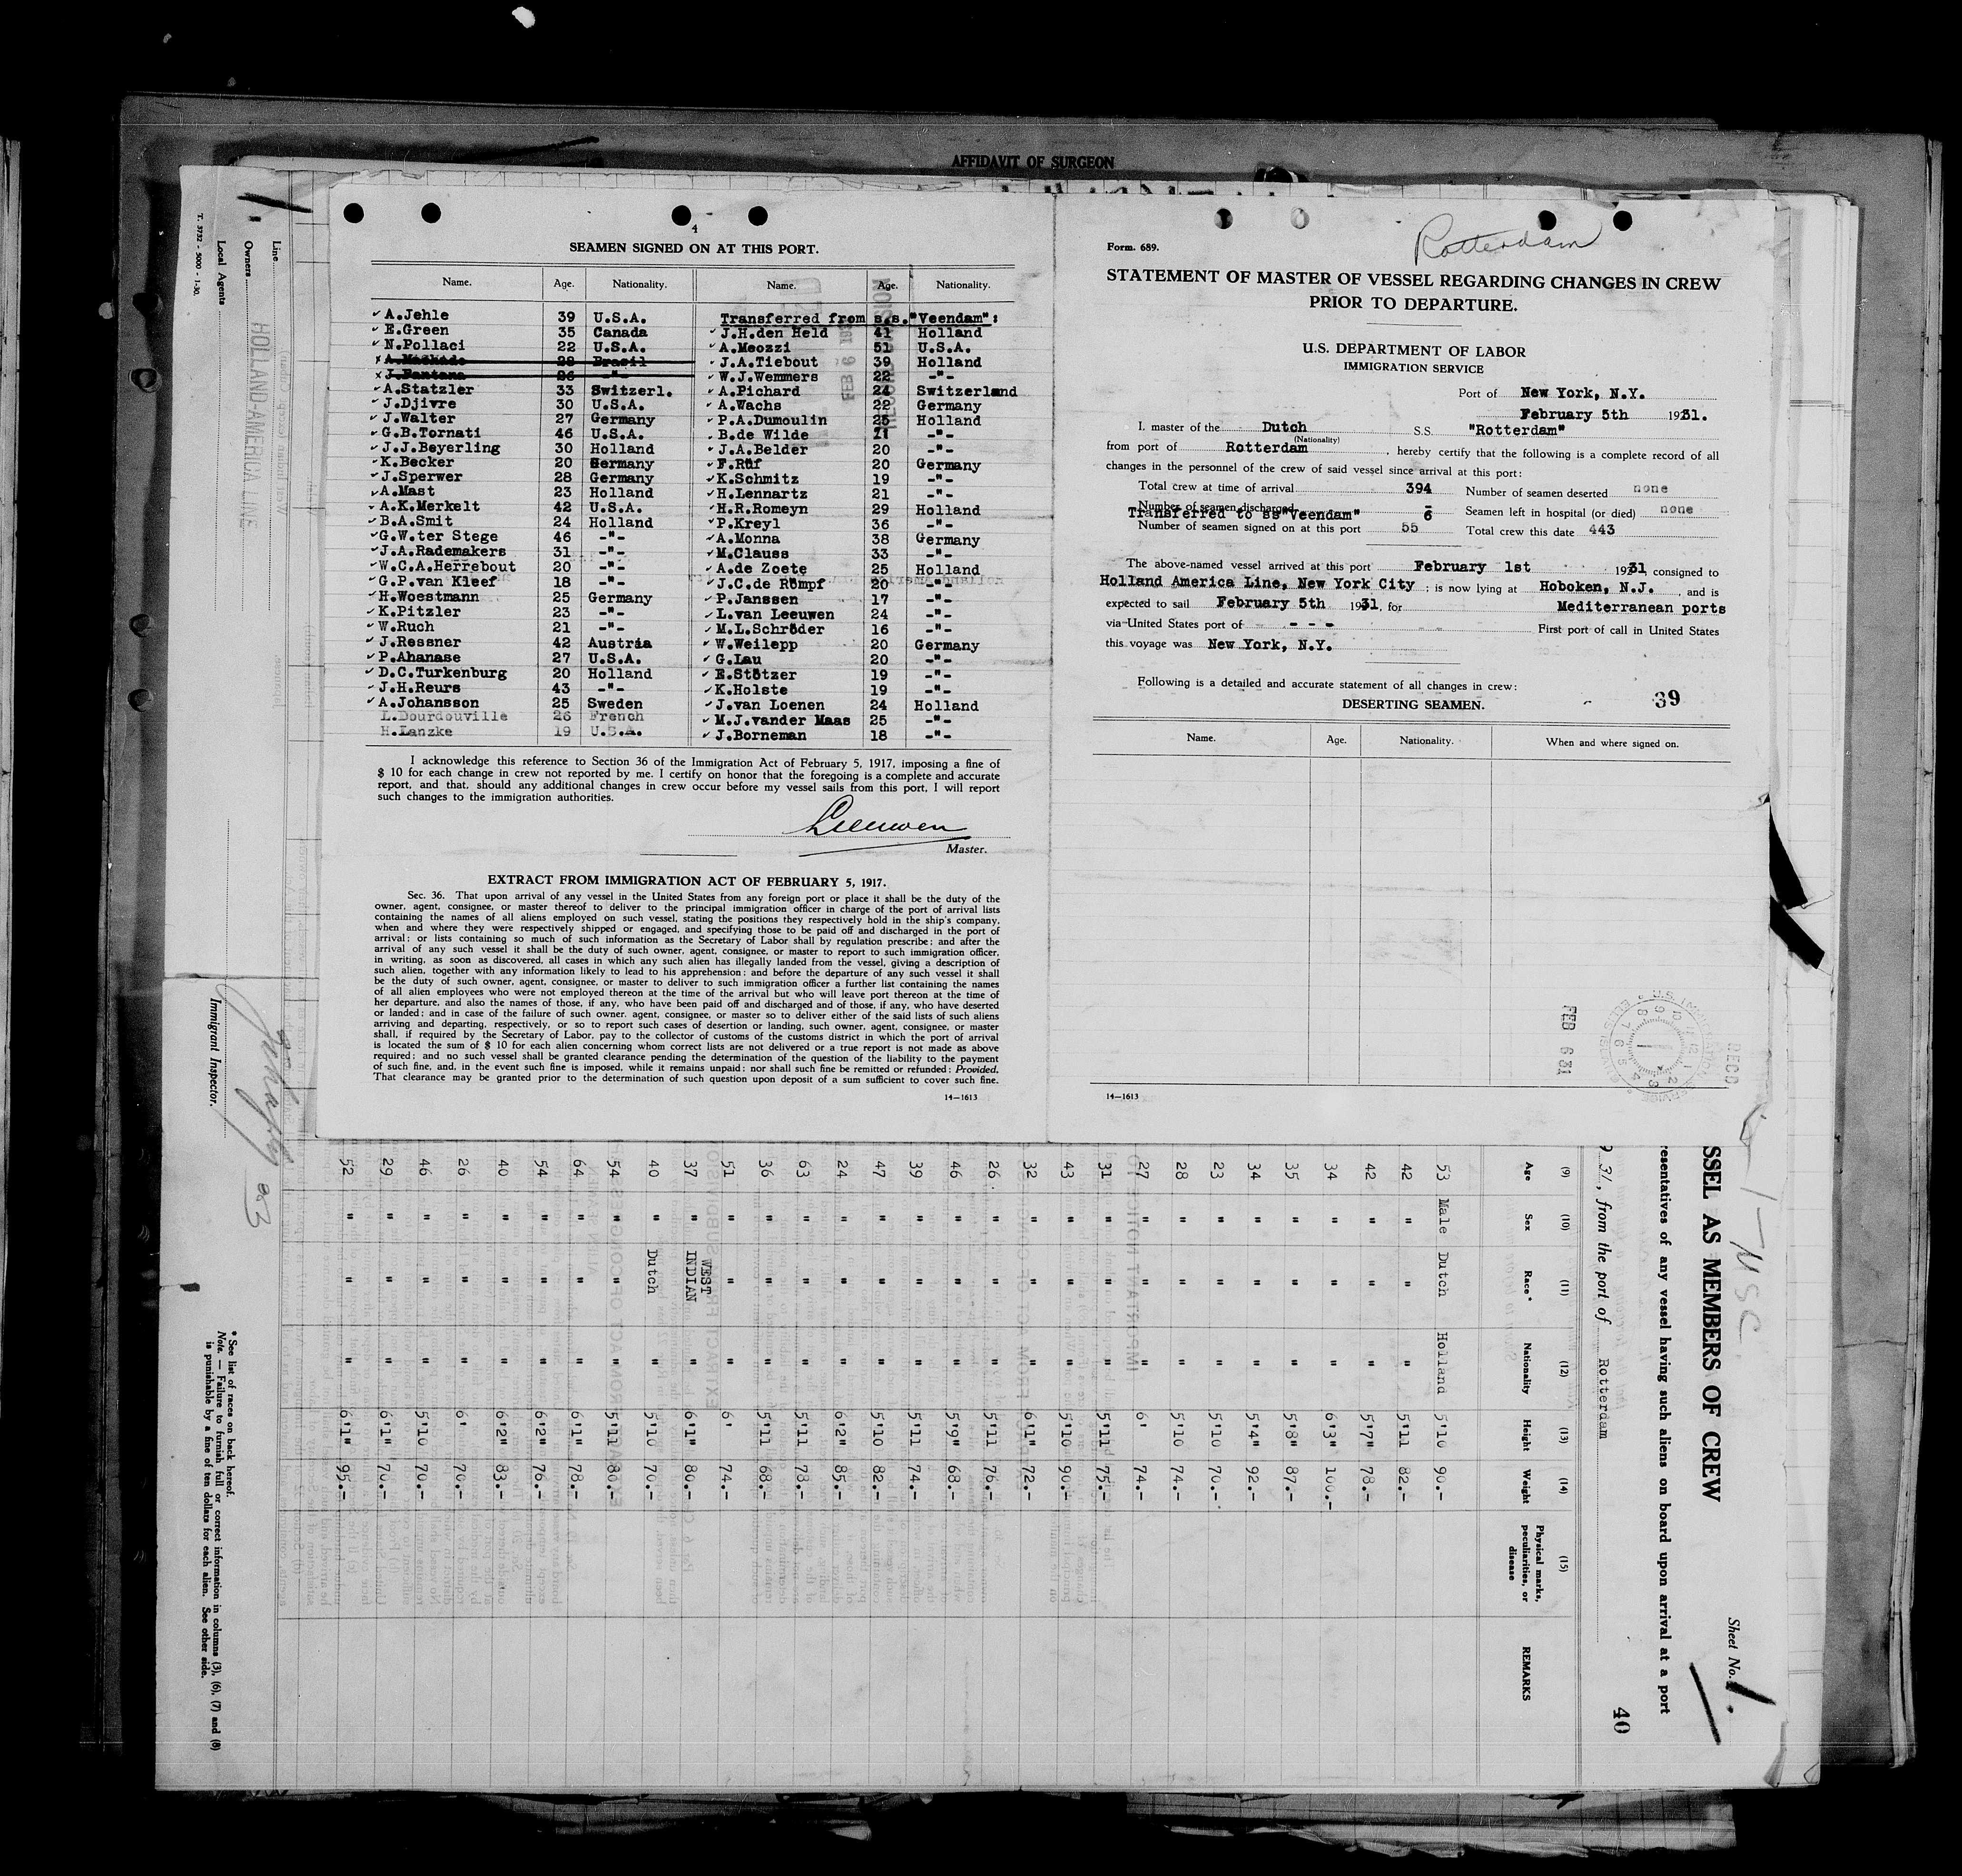 AFFIDAVIT OF SURGEON
4
SEAMEN SIGNED ON AT THIS PORT.
Name. Age. Nationality. Name. Age. Nationality.
A.Jehle 39 U.S.A. Transferred from s.s."Veendam":
E.Green 35 Canada J.H.den Held 41 Holland
N.Pollaci 22 U.S.A. A.Meozzi 51 U.S.A.
A.Machado 28 Brasil J.A.Tiebout 39 Holland
J.Fantana 26 -"- W.J.Wemmers 22 -"-
A.Statzler 33 Switzerl. A.Pichard 24 Switzerland
J.Djivre 30 U.S.A. A.Wachs 22 Germany
J.Walter 27 Germany P.A.Dumoulin 25 Holland
G.B.Tornati 46 U.S.A. B.de Wilde 21 -"-
J.J.Beyerling 30 Holland J.A.Belder 20 -"-
K.Becker 20 Germany F.Rüf 20 Germany
J.Sperwer 28 Germany K.Schmitz 19 -"-
A.Mast 23 Holland H.Lennartz 21 -"-
A.K.Merkelt 42 U.S.A. H.R.Romeyn 29 Holland
B.A.Smit 24 Holland P.Kreyl 36 -"-
G.W.ter Stege 46 -"- A.Monna 38 Germany
J.A.Rademakers 31 -"- M.Clauss 33 -"-
W.C.A.Herrebout 20 -"- A.de Zoete 25 Holland
G.P.van Kleef 18 -"- J.C.de Römpf 20 -"-
H.Woestmann 25 Germany P.Janssen 17 -"-
K.Pitzler 23 -"- L.van Leeuwen 24 -"-
W.Ruch 21 -"- M.L.Schröder 16 -"-
J.Ressner 42 Austria W.Weilepp 20 Germany
P.Ahanase 27 U.S.A. G.Lau 20 -"-
D.C.Turkenburg 20 Holland E.Stötzer 19 -"-
J.H.Reurs 43 -"- K.Holste 19 -"-
A.Johansson 25 Sweden J.van Loenen 24 Holland
L.Dourdouville 26 French M.J.vander Maas 25 -"-
H.Lanzke 19 U.S.A. J.Borneman 18 -"-
I acknowledge this reference to Section 36 of the Immigration Act of February 5, 1917, imposing a fine of
$ 10 for each change in crew not reported by me. I certify on honor that the foregoing is a complete and accurate
report, and that, should any additional changes in crew occur before my vessel sails from this port, I will report
such changes to the immigration authorities.
Master.
EXTRACT FROM IMMIGRATION ACT OF FEBRUARY 5, 1917.
Sec. 36. That upon arrival of any vessel in the United States from any foreign port or place it shall be the duty of the
owner, agent, consignee, or master thereof to deliver to the principal immigration officer in charge of the port of arrival lists
containing the names of all aliens employed on such vessel, stating the positions they respectively hold in the ship's company,
when and where they were respectively shipped or engaged, and specifying those to be paid off and discharged in the port of
arrival; or lists containing so much of such information as the Secretary of Labor shall by regulation prescribe; and after the
arrival of any such vessel it shall be the duty of such owner, agent, consignee, or master to report to such immigration officer,
in writing, as soon as discovered, all cases in which any such alien has illegally landed from the vessel, giving a description of
such alien, together with any information likely to lead to his apprehension; and before the departure of any such vessel it shall
be the duty of such owner, agent, consignee, or master to deliver to such immigration officer a further list containing the names
of all alien employees who were not employed thereon at the time of the arrival but who will leave port thereon at the time of
her departure, and also the names of those, if any, who have been paid off and discharged and of those, if any, who have deserted
or landed; and in case of the failure of such owner. agent, consignee, or master so to deliver either of the said lists of such aliens
arriving and departing, respectively, or so to report such cases of desertion or landing, such owner, agent, consignee, or master
shall, if required by the Secretary of Labor, pay to the collector of customs of the customs district in which the port of arrival
is located the sum of $ 10 for each alien concerning whom correct lists are not delivered or a true report is not made as above
required; and no such vessel shall be granted clearance pending the determination of the question of the liability to the payment
of such fine, and, in the event such fine is imposed, while it remains unpaid; nor shall such fine be remitted or refunded: Provided,
That clearance may be granted prior to the determination of such question upon deposit of a sum sufficient to cover such fine.
14—1613
Rotterdam
Form. 689.
STATEMENT OF MASTER OF VESSEL REGARDING CHANGES IN CREW
PRIOR TO DEPARTURE.
U.S. DEPARTMENT OF LABOR
IMMIGRATION SERVICE
Port of New York, N.Y.
February 5th 1931.
I, master of the Dutch S.S. "Rotterdam"
(Nationality)
from port of Rotterdam, hereby certify that the following is a complete record of all
changes in the personnel of the crew of said vessel since arrival at this port:
Total crew at time of arrival 394 Number of seamen deserted none
Number of seamen discharged - Seamen left in hospital (or died) none
Transferred to ss"Veendam" 6
Number of seamen signed on at this port 55 Total crew this date 443
The above-named vessel arrived at this port February 1st 1931, consigned to
Holland America Line, New York City ; is now lying at Hoboken, N.J. , and is
expected to sail February 5th 1931, for Mediterranean ports
via United States port of - - - First port of call in United States
this voyage was New York, N.Y.
Following is a detailed and accurate statement of all changes in crew:
39
DESERTING SEAMEN.
Name. Age. Nationality. When and where signed on.
FEB 6 31
14—1613
T. 3732 - 5000 - 1-30.
Local Agents
Owners HOLLAND-AMERICA LINE
Line
Immigrant Inspector.
Sheet No. 1.
SSEL AS MEMBERS OF CREW
resentatives of any vessel having such aliens on board upon arrival at a port
31, from the port of Rotterdam
40
(9) (10) (11) (12) (13) (14) (15)
Age Sex Race* Nationality Height Weight Physical marks, peculiarities, or disease REMARKS
53 Male Dutch Holland 5'10 90.-
42 " " " 5'11 82.-
42 " " " 5'7" 78.-
34 " " " 6'3" 100.-
35 " " " 5'8" 87.-
34 " " " 5'4" 92.-
23 " " " 5'10 70.-
28 " " " 5'10 74.-
27 " " " 6' 74.-
31 " " " 5'11 75.-
43 " " " 5'10 90.-
32 " " " 6'1" 72.-
26 " " " 5'11 76.-
46 " " " 5'9" 68.-
39 " " " 5'11 74.-
47 " " " 5'10 82.-
24 " " " 6'2" 85.-
63 " " " 5'11 78.-
36 " " " 5'11 68.-
51 " " " 6' 74.-
37 " WEST INDIAN " 6'1" 80.-
40 " Dutch " 5'10 70.-
54 " " " 5'11 80.-
64 " " " 6'1" 78.-
54 " " " 6'2" 76.-
40 " " " 6'2" 83.-
26 " " " 6' 70.-
46 " " " 5'10 70.-
29 " " " 6'1" 70.-
52 " " " 6'1" 95.-
* See list of races on back hereof.
Note. — Failure to furnish full or correct information in columns (3), (6), (7) and (8)
is punishable by a fine of ten dollars for each alien. See other side.